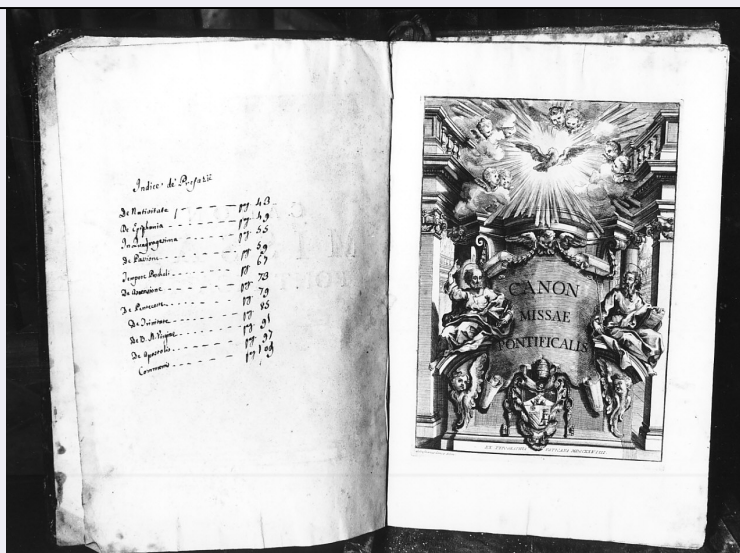 Indice de' Prefazii
De Nativitate - - - - pg 43
De Epiphania - - - - pg 49
In Quadragesima pg 55
De Passione - - - - pg 59
Tempore Paschali pg 67
De Ascensione - - - - pg 73
De Pentecoste - - - - pg 79
De Trinitate - - - - pg 85
De B. M. Virgine - - - - pg 91
De Apostolis - - - - pg 97
Communis - - - - pg 109
CANON
MISSAE
PONTIFICALIS
EX TYPOGRAPHIA VATICANA